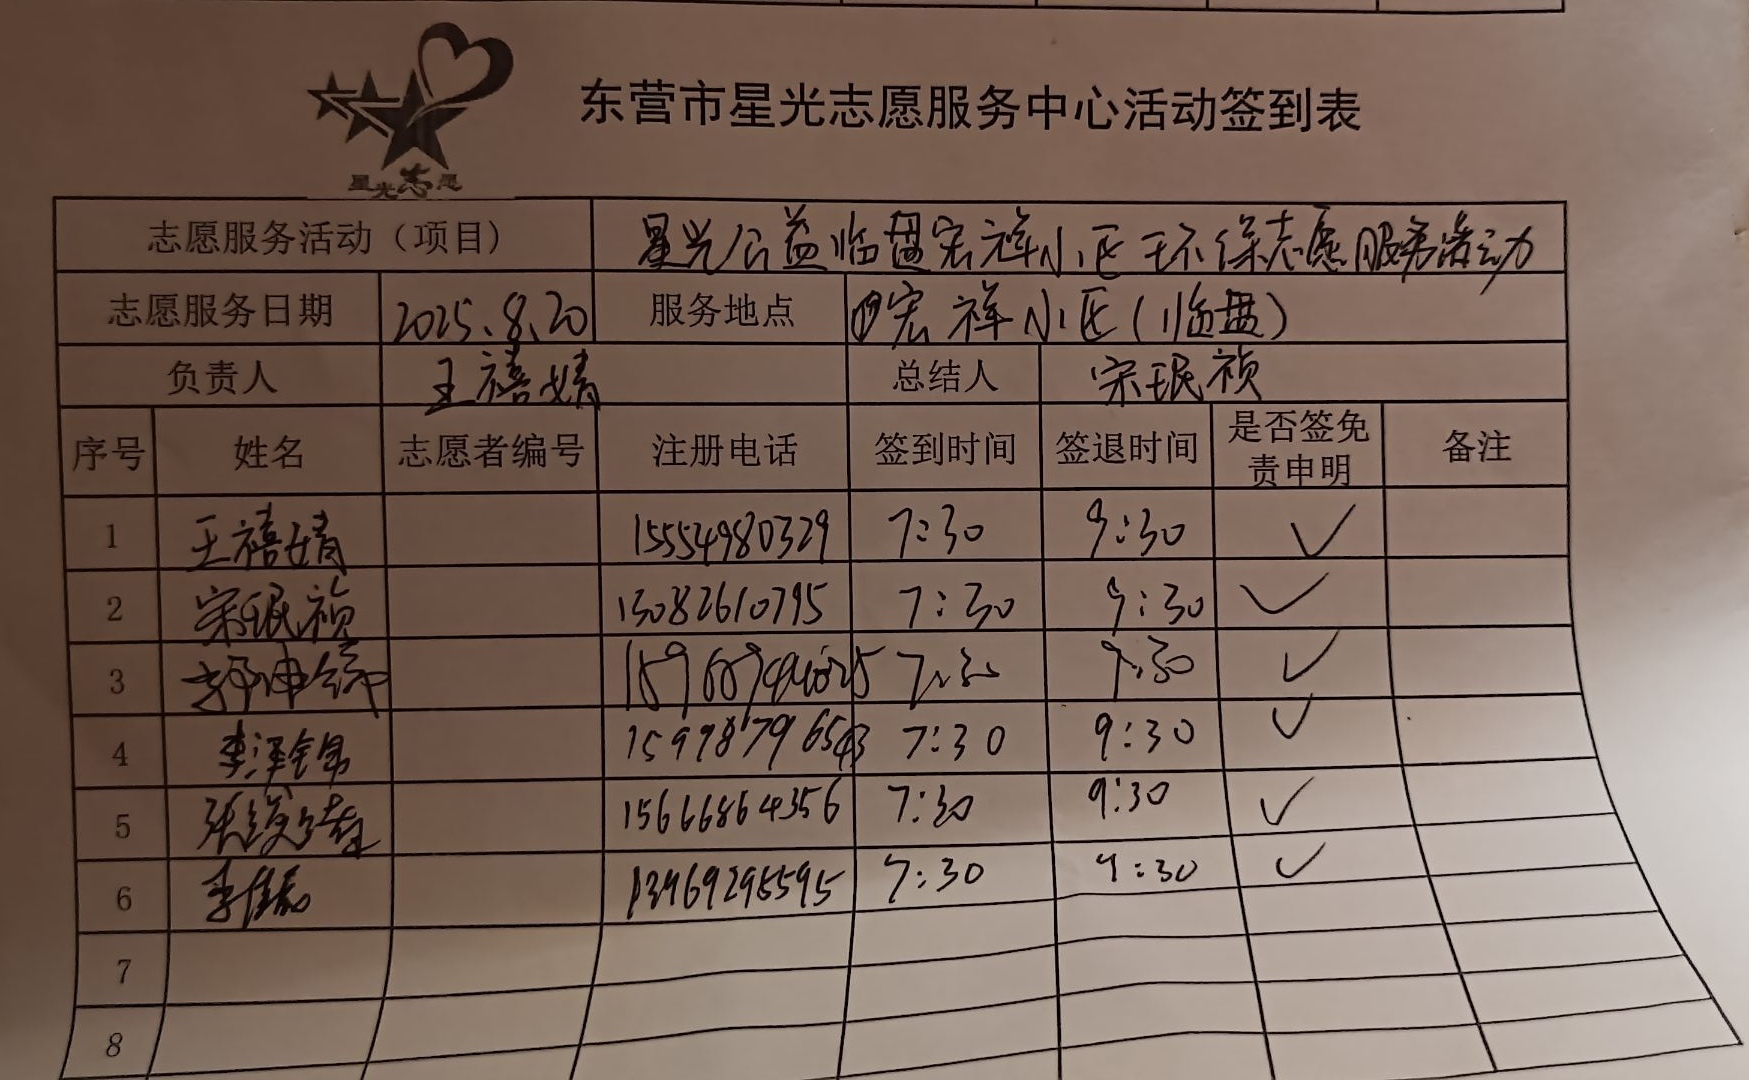 星光志愿
东营市星光志愿服务中心活动签到表
志愿服务活动（项目） 星光公益临盘宏祥小区环保志愿服务活动
志愿服务日期 2025.8.20 服务地点 宏祥小区(临盘)
负责人 王禧婧 总结人 宋珉祯
序号 姓名 志愿者编号 注册电话 签到时间 签退时间 是否签免责申明 备注
1 王禧婧 15554980329 7:30 9:30 ✓
2 宋珉祯 13082610795 7:30 9:30 ✓
3 7:30 9:30 ✓
4 李泽锦 7:30 9:30 ✓
5 15666864356 7:30 9:30 ✓
6 13969295595 7:30 9:30 ✓
7
8